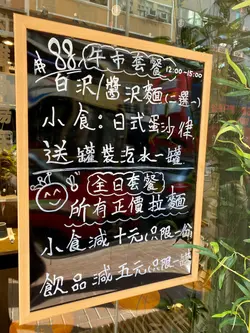 $88 午市套餐 12:00-15:00
白沢/醬沢麵(二選一)
小食:日式蛋沙律,
送罐裝汽水一罐
全日套餐
所有正價拉麵
小食減十元只限一份
飲品減五元只限一罐